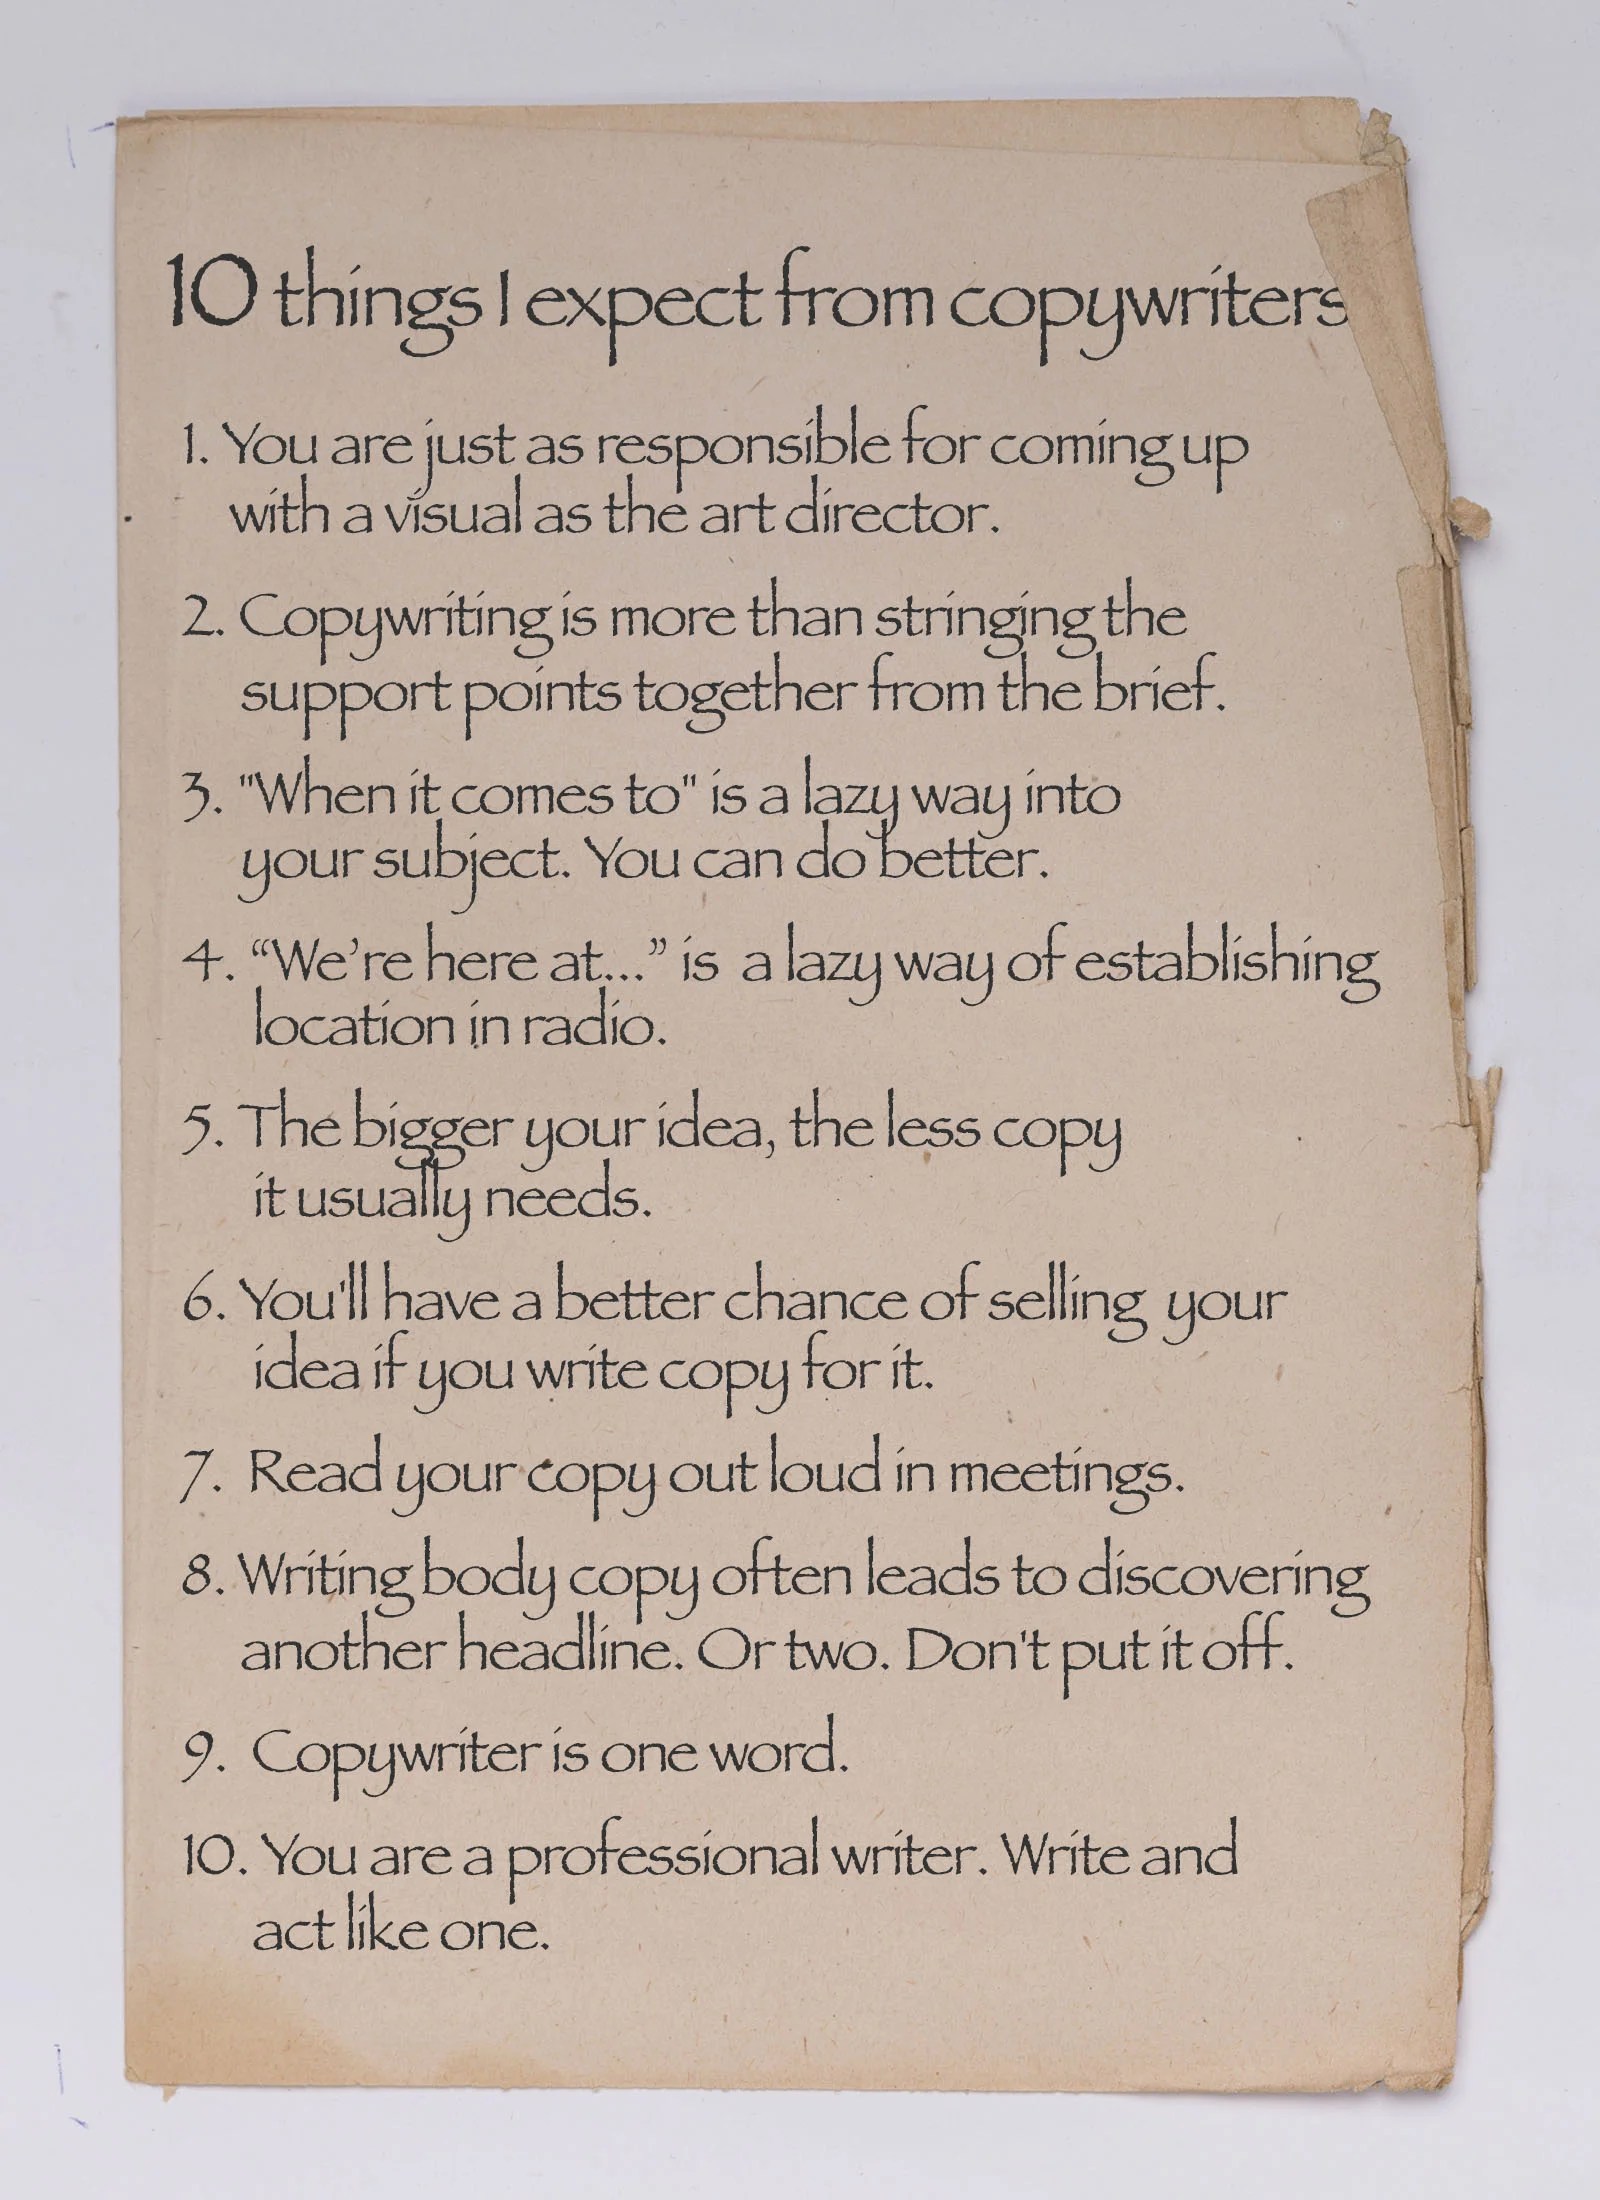 10 things I expect from copywriters
1. You are just as responsible for coming up
with a visual as the art director.
2. Copywriting is more than stringing the
support points together from the brief.
3. "When it comes to" is a lazy way into
your subject. You can do better.
4. “We’re here at...” is a lazy way of establishing
location in radio.
5. The bigger your idea, the less copy
it usually needs.
6. You'll have a better chance of selling your
idea if you write copy for it.
7. Read your copy out loud in meetings.
8. Writing body copy often leads to discovering
another headline. Or two. Don't put it off.
9. Copywriter is one word.
10. You are a professional writer. Write and
act like one.